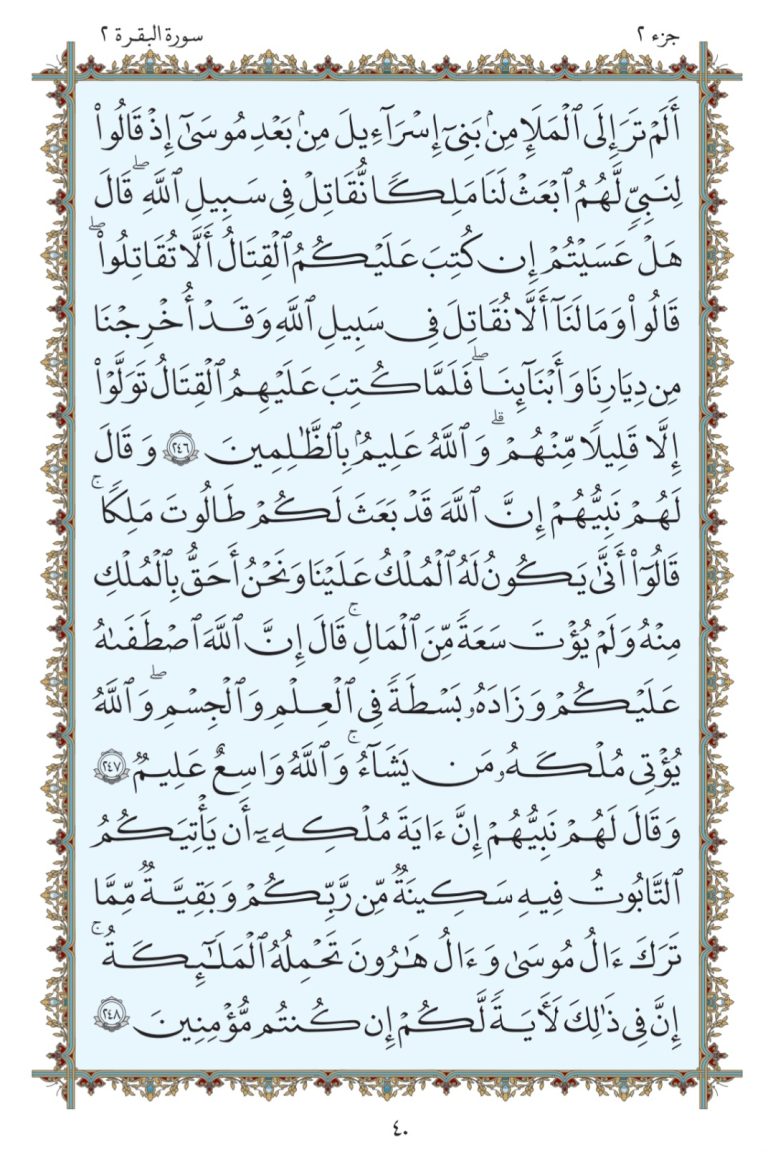 جزء ٢
سورة البقرة ٢
أَلَمْ تَرَ إِلَى ٱلْمَلَإِ مِنۢ بَنِىٓ إِسْرَٰٓءِيلَ مِنۢ بَعْدِ مُوسَىٰٓ إِذْ قَالُوا۟
لِنَبِىٍّ لَّهُمُ ٱبْعَثْ لَنَا مَلِكًا نُّقَٰتِلْ فِى سَبِيلِ ٱللَّهِ ۖ قَالَ
هَلْ عَسَيْتُمْ إِن كُتِبَ عَلَيْكُمُ ٱلْقِتَالُ أَلَّا تُقَٰتِلُوا۟ ۖ
قَالُوا۟ وَمَا لَنَآ أَلَّا نُقَٰتِلَ فِى سَبِيلِ ٱللَّهِ وَقَدْ أُخْرِجْنَا
مِن دِيَٰرِنَا وَأَبْنَآئِنَا ۖ فَلَمَّا كُتِبَ عَلَيْهِمُ ٱلْقِتَالُ تَوَلَّوْا۟
إِلَّا قَلِيلًا مِّنْهُمْ ۗ وَٱللَّهُ عَلِيمٌۢ بِٱلظَّٰلِمِينَ ٢٤٦ وَقَالَ
لَهُمْ نَبِيُّهُمْ إِنَّ ٱللَّهَ قَدْ بَعَثَ لَكُمْ طَالُوتَ مَلِكًا ۚ
قَالُوٓا۟ أَنَّىٰ يَكُونُ لَهُ ٱلْمُلْكُ عَلَيْنَا وَنَحْنُ أَحَقُّ بِٱلْمُلْكِ
مِنْهُ وَلَمْ يُؤْتَ سَعَةً مِّنَ ٱلْمَالِ ۚ قَالَ إِنَّ ٱللَّهَ ٱصْطَفَىٰهُ
عَلَيْكُمْ وَزَادَهُۥ بَسْطَةً فِى ٱلْعِلْمِ وَٱلْجِسْمِ ۖ وَٱللَّهُ
يُؤْتِى مُلْكَهُۥ مَن يَشَآءُ ۚ وَٱللَّهُ وَٰسِعٌ عَلِيمٌ ٢٤٧
وَقَالَ لَهُمْ نَبِيُّهُمْ إِنَّ ءَايَةَ مُلْكِهِۦٓ أَن يَأْتِيَكُمُ
ٱلتَّابُوتُ فِيهِ سَكِينَةٌ مِّن رَّبِّكُمْ وَبَقِيَّةٌ مِّمَّا
تَرَكَ ءَالُ مُوسَىٰ وَءَالُ هَٰرُونَ تَحْمِلُهُ ٱلْمَلَٰٓئِكَةُ ۚ
إِنَّ فِى ذَٰلِكَ لَءَايَةً لَّكُمْ إِن كُنتُم مُّؤْمِنِينَ ٢٤٨
٤٠